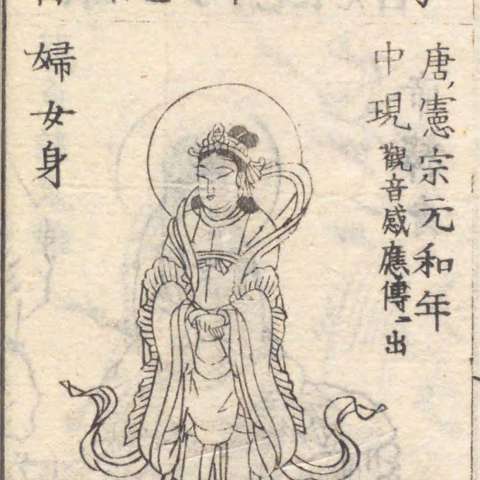 唐、憲宗元和年
中現 觀音感應傳ニ出
婦女身